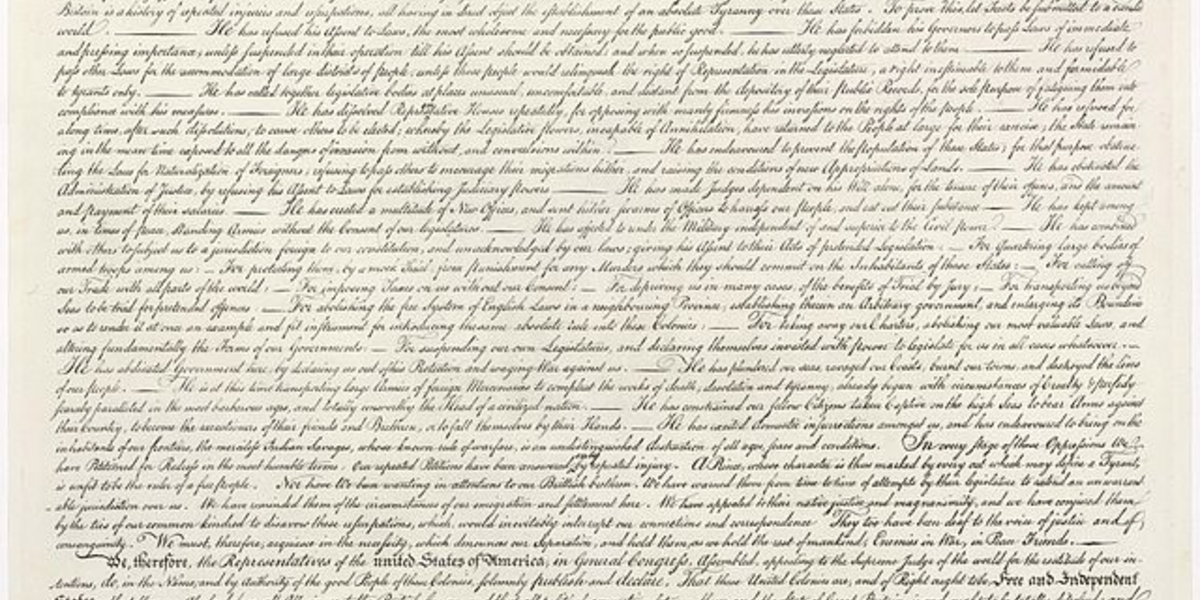 Britain is a history of repeated injuries and usurpations, all having in direct object the establishment of an absolute Tyranny over these States. To prove this, let Facts be submitted to a candid
world. — He has refused his Assent to Laws, the most wholesome and necessary for the public good. — He has forbidden his Governors to pass Laws of immediate
and pressing importance, unless suspended in their operation till his Assent should be obtained; and when so suspended, he has utterly neglected to attend to them. — He has refused to
pass other Laws for the accommodation of large districts of people, unless those people would relinquish the right of Representation in the Legislature, a right inestimable to them and formidable
to tyrants only. — He has called together legislative bodies at places unusual, uncomfortable, and distant from the depository of their Public Records, for the sole purpose of fatiguing them into
compliance with his measures. — He has dissolved Representative Houses repeatedly, for opposing with manly firmness his invasions on the rights of the people. — He has refused for
a long time, after such dissolutions, to cause others to be elected; whereby the Legislative powers, incapable of Annihilation, have returned to the People at large for their exercise; the State remain-
ing in the mean time exposed to all the dangers of invasion from without, and convulsions within. — He has endeavoured to prevent the Population of these States; for that purpose obstruc-
ting the Laws for Naturalization of Foreigners; refusing to pass others to encourage their migrations hither, and raising the conditions of new Appropriations of Lands. — He has obstructed the
Administration of Justice, by refusing his Assent to Laws for establishing Judiciary powers. — He has made Judges dependent on his Will alone, for the tenure of their offices, and the amount
and payment of their salaries. — He has erected a multitude of New Offices, and sent hither swarms of Officers to harass our People, and eat out their substance. — He has kept among
us, in times of peace, Standing Armies without the Consent of our legislatures. — He has affected to render the Military independent of and superior to the Civil power. — He has combined
with others to subject us to a jurisdiction foreign to our constitution, and unacknowledged by our laws; giving his Assent to their Acts of pretended Legislation: — For Quartering large bodies of
armed troops among us: — For protecting them, by a mock Trial, from punishment for any Murders which they should commit on the Inhabitants of these States: — For cutting off
our Trade with all parts of the world: — For imposing Taxes on us without our Consent: — For depriving us in many cases, of the benefits of Trial by Jury: — For transporting us beyond
Seas to be tried for pretended offences: — For abolishing the free System of English Laws in a neighbouring Province, establishing therein an Arbitrary government, and enlarging its Boundaries
so as to render it at once an example and fit instrument for introducing the same absolute rule into these Colonies: — For taking away our Charters, abolishing our most valuable Laws, and
altering fundamentally the Forms of our Governments: — For suspending our own Legislatures, and declaring themselves invested with power to legislate for us in all cases whatsoever. —
He has abdicated Government here, by declaring us out of his Protection and waging War against us. — He has plundered our seas, ravaged our Coasts, burnt our towns, and destroyed the lives
of our people. — He is at this time transporting large Armies of foreign Mercenaries to compleat the works of death, desolation and tyranny, already begun with circumstances of Cruelty & perfidy
scarcely paralleled in the most barbarous ages, and totally unworthy the Head of a civilized nation. — He has constrained our fellow Citizens taken Captive on the high Seas to bear Arms against
their Country, to become the executioners of their friends and Brethren, or to fall themselves by their Hands. — He has excited domestic insurrections amongst us, and has endeavoured to bring on the
inhabitants of our frontiers, the merciless Indian Savages, whose known rule of warfare, is an undistinguished destruction of all ages, sexes and conditions. In every stage of these Oppressions We
have Petitioned for Redress in the most humble terms: Our repeated Petitions have been answered only by repeated injury. A Prince, whose character is thus marked by every act which may define a Tyrant,
is unfit to be the ruler of a free people. Nor have We been wanting in attentions to our Brittish brethren. We have warned them from time to time of attempts by their legislature to extend an unwarrant-
able jurisdiction over us. We have reminded them of the circumstances of our emigration and settlement here. We have appealed to their native justice and magnanimity, and we have conjured them
by the ties of our common kindred to disavow these usurpations, which, would inevitably interrupt our connections and correspondence. They too have been deaf to the voice of justice and of
consanguinity. We must, therefore, acquiesce in the necessity, which denounces our Separation, and hold them, as we hold the rest of mankind, Enemies in War, in Peace Friends. —
We, therefore, the Representatives of the united States of America, in General Congress, Assembled, appealing to the Supreme Judge of the world for the rectitude of our in-
tentions, do, in the Name, and by Authority of the good People of these Colonies, solemnly publish and declare, That these United Colonies are, and of Right ought to be Free and Independent